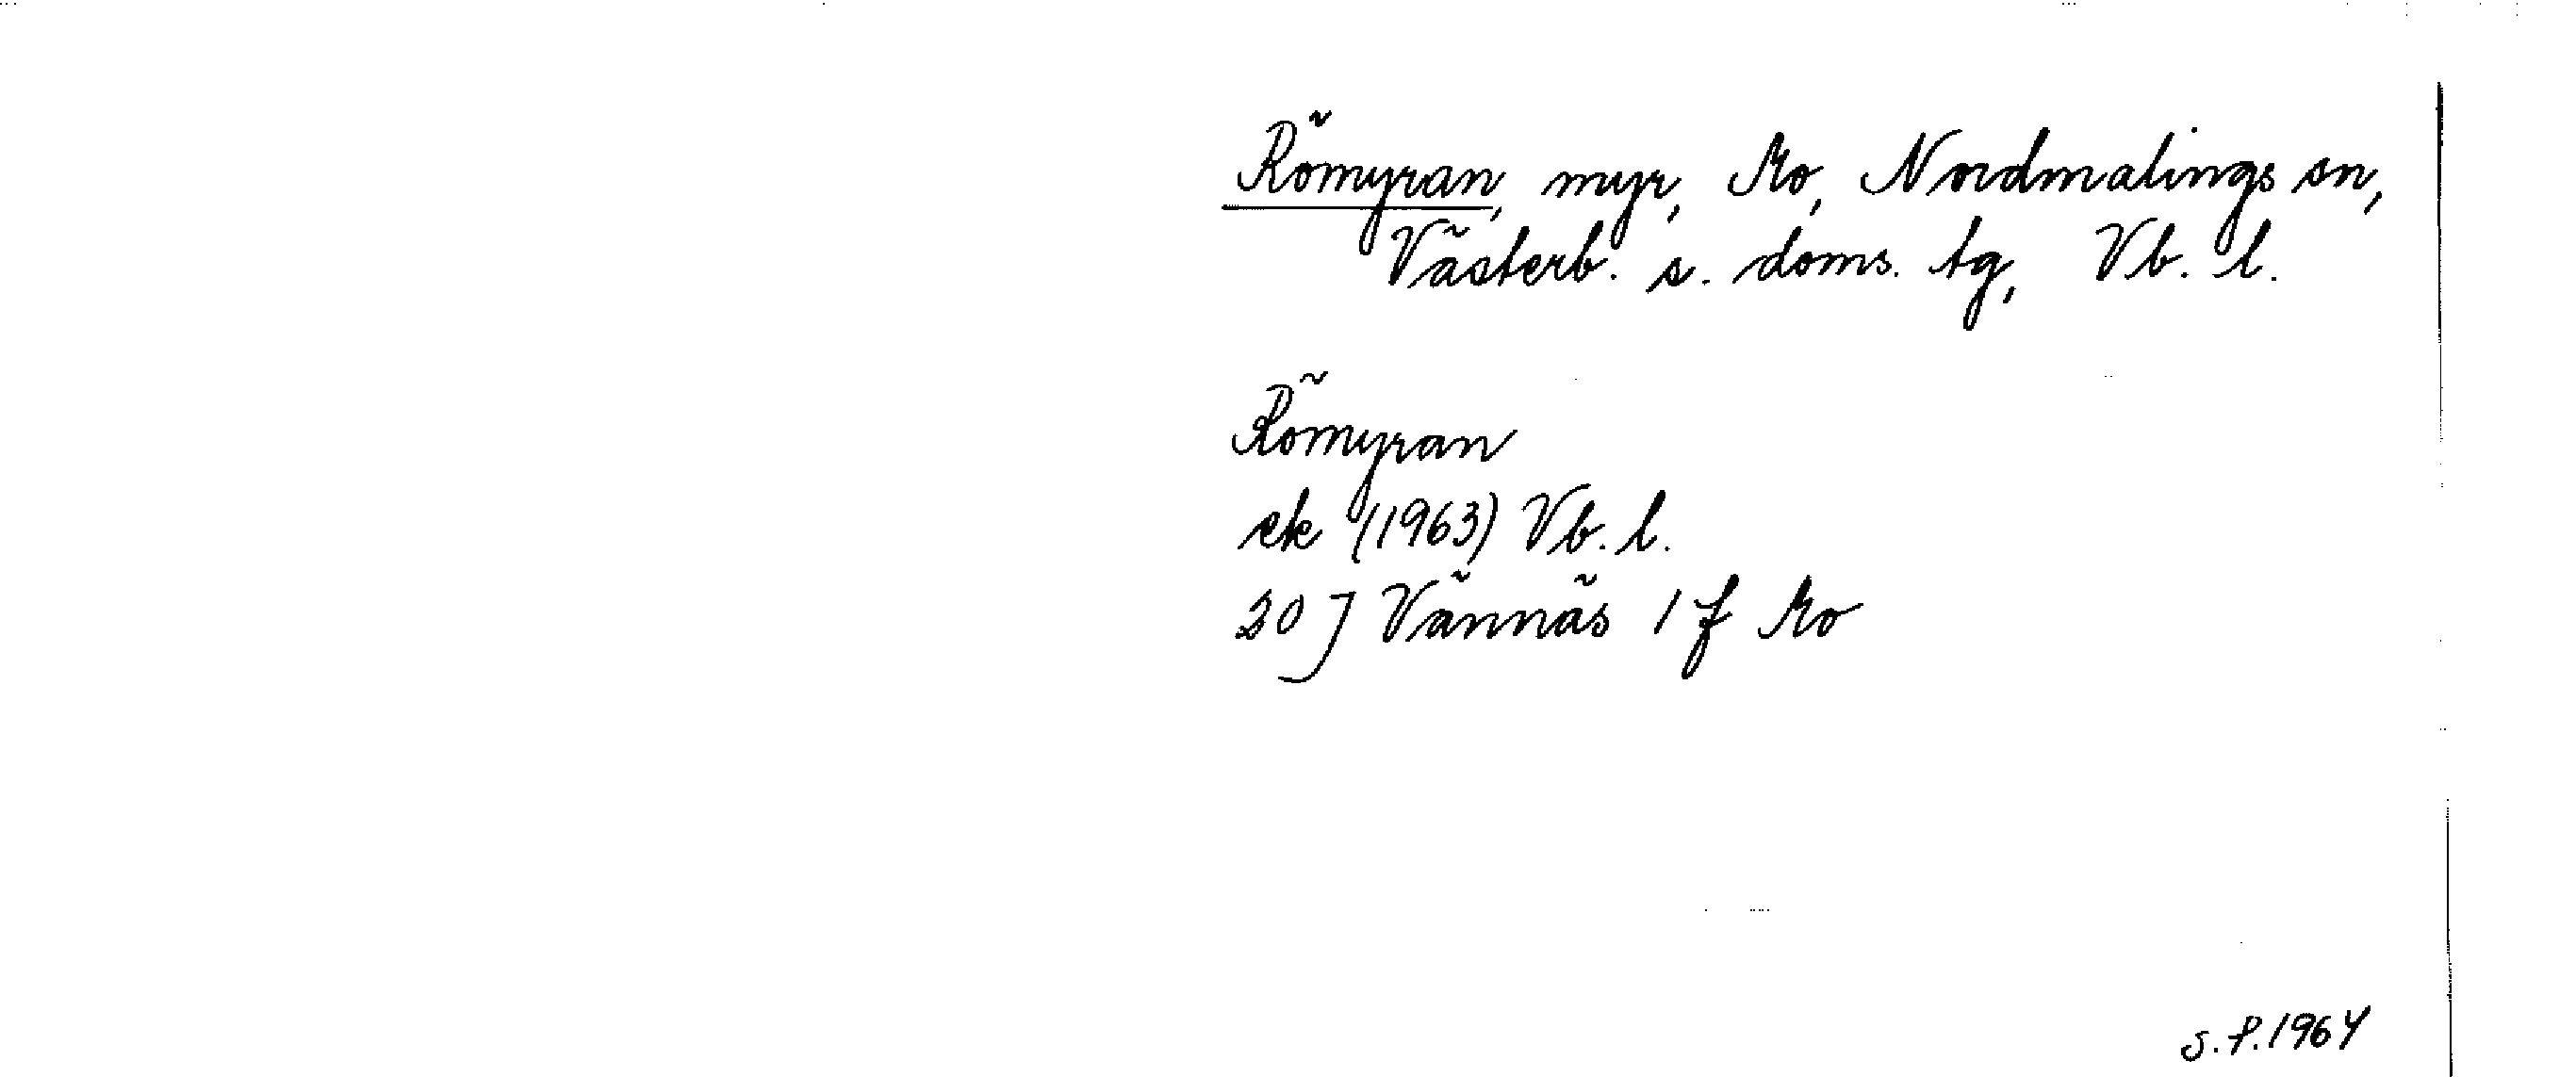 Römyran, myr, Mo, Nordmalings sn,
Västerb. s. doms. tg, Vb. l.
Römyran
ek (1963) Vb. l.
20 J Vännäs 1 f Mo
S.P. 1964